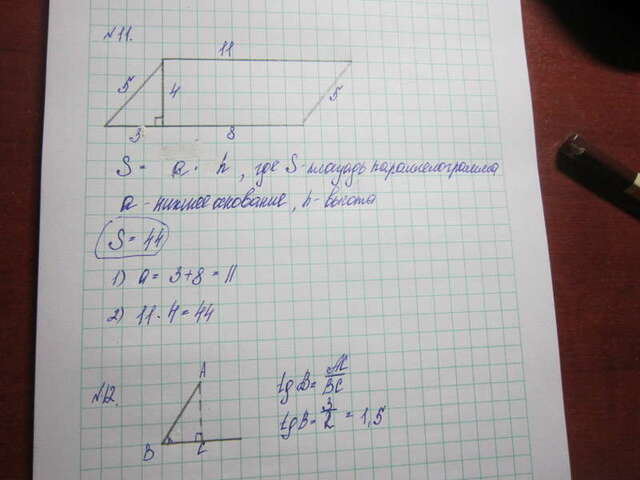 №11.
11
5
4
5
3
8
S = a · h, где S - площадь параллелограмма
a - нижнее основание, h - высота
S = 44
1) a = 3+8 = 11
2) 11 · 4 = 44
№12.
A
B
C
tgB = AC/BC
tgB = 3/2 = 1,5